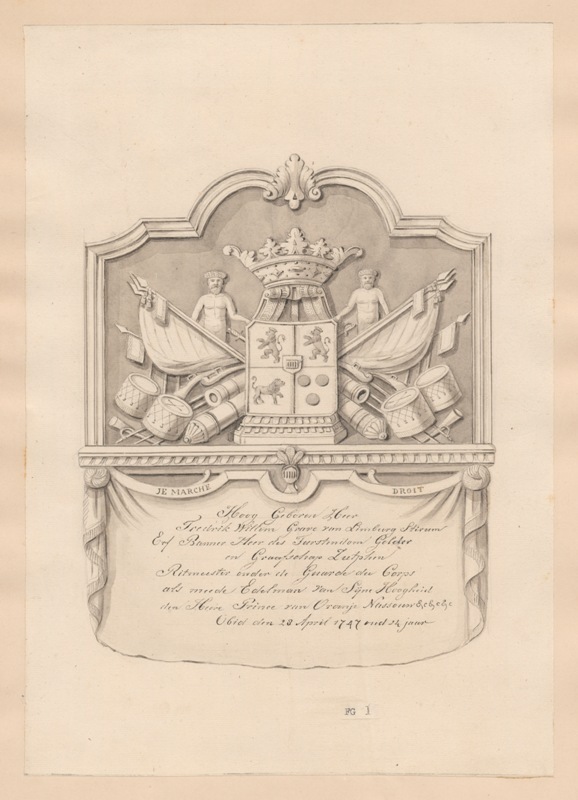 JE MARCHE DROIT
Hoog Geboren Heer
Fredrik Willem Grave van Limburg Stirum
Erf Banner Heer des Furstendom Gelder
en Graafschap Zutphen
Ritmeester onder de Guarde du Corps
als mede Edelman van Sijne Hoogheid
den Heere Prince van Oranje Nassouw &c &c &c
Obiit den 28 April 1747 oud 24 jaar
FG 1